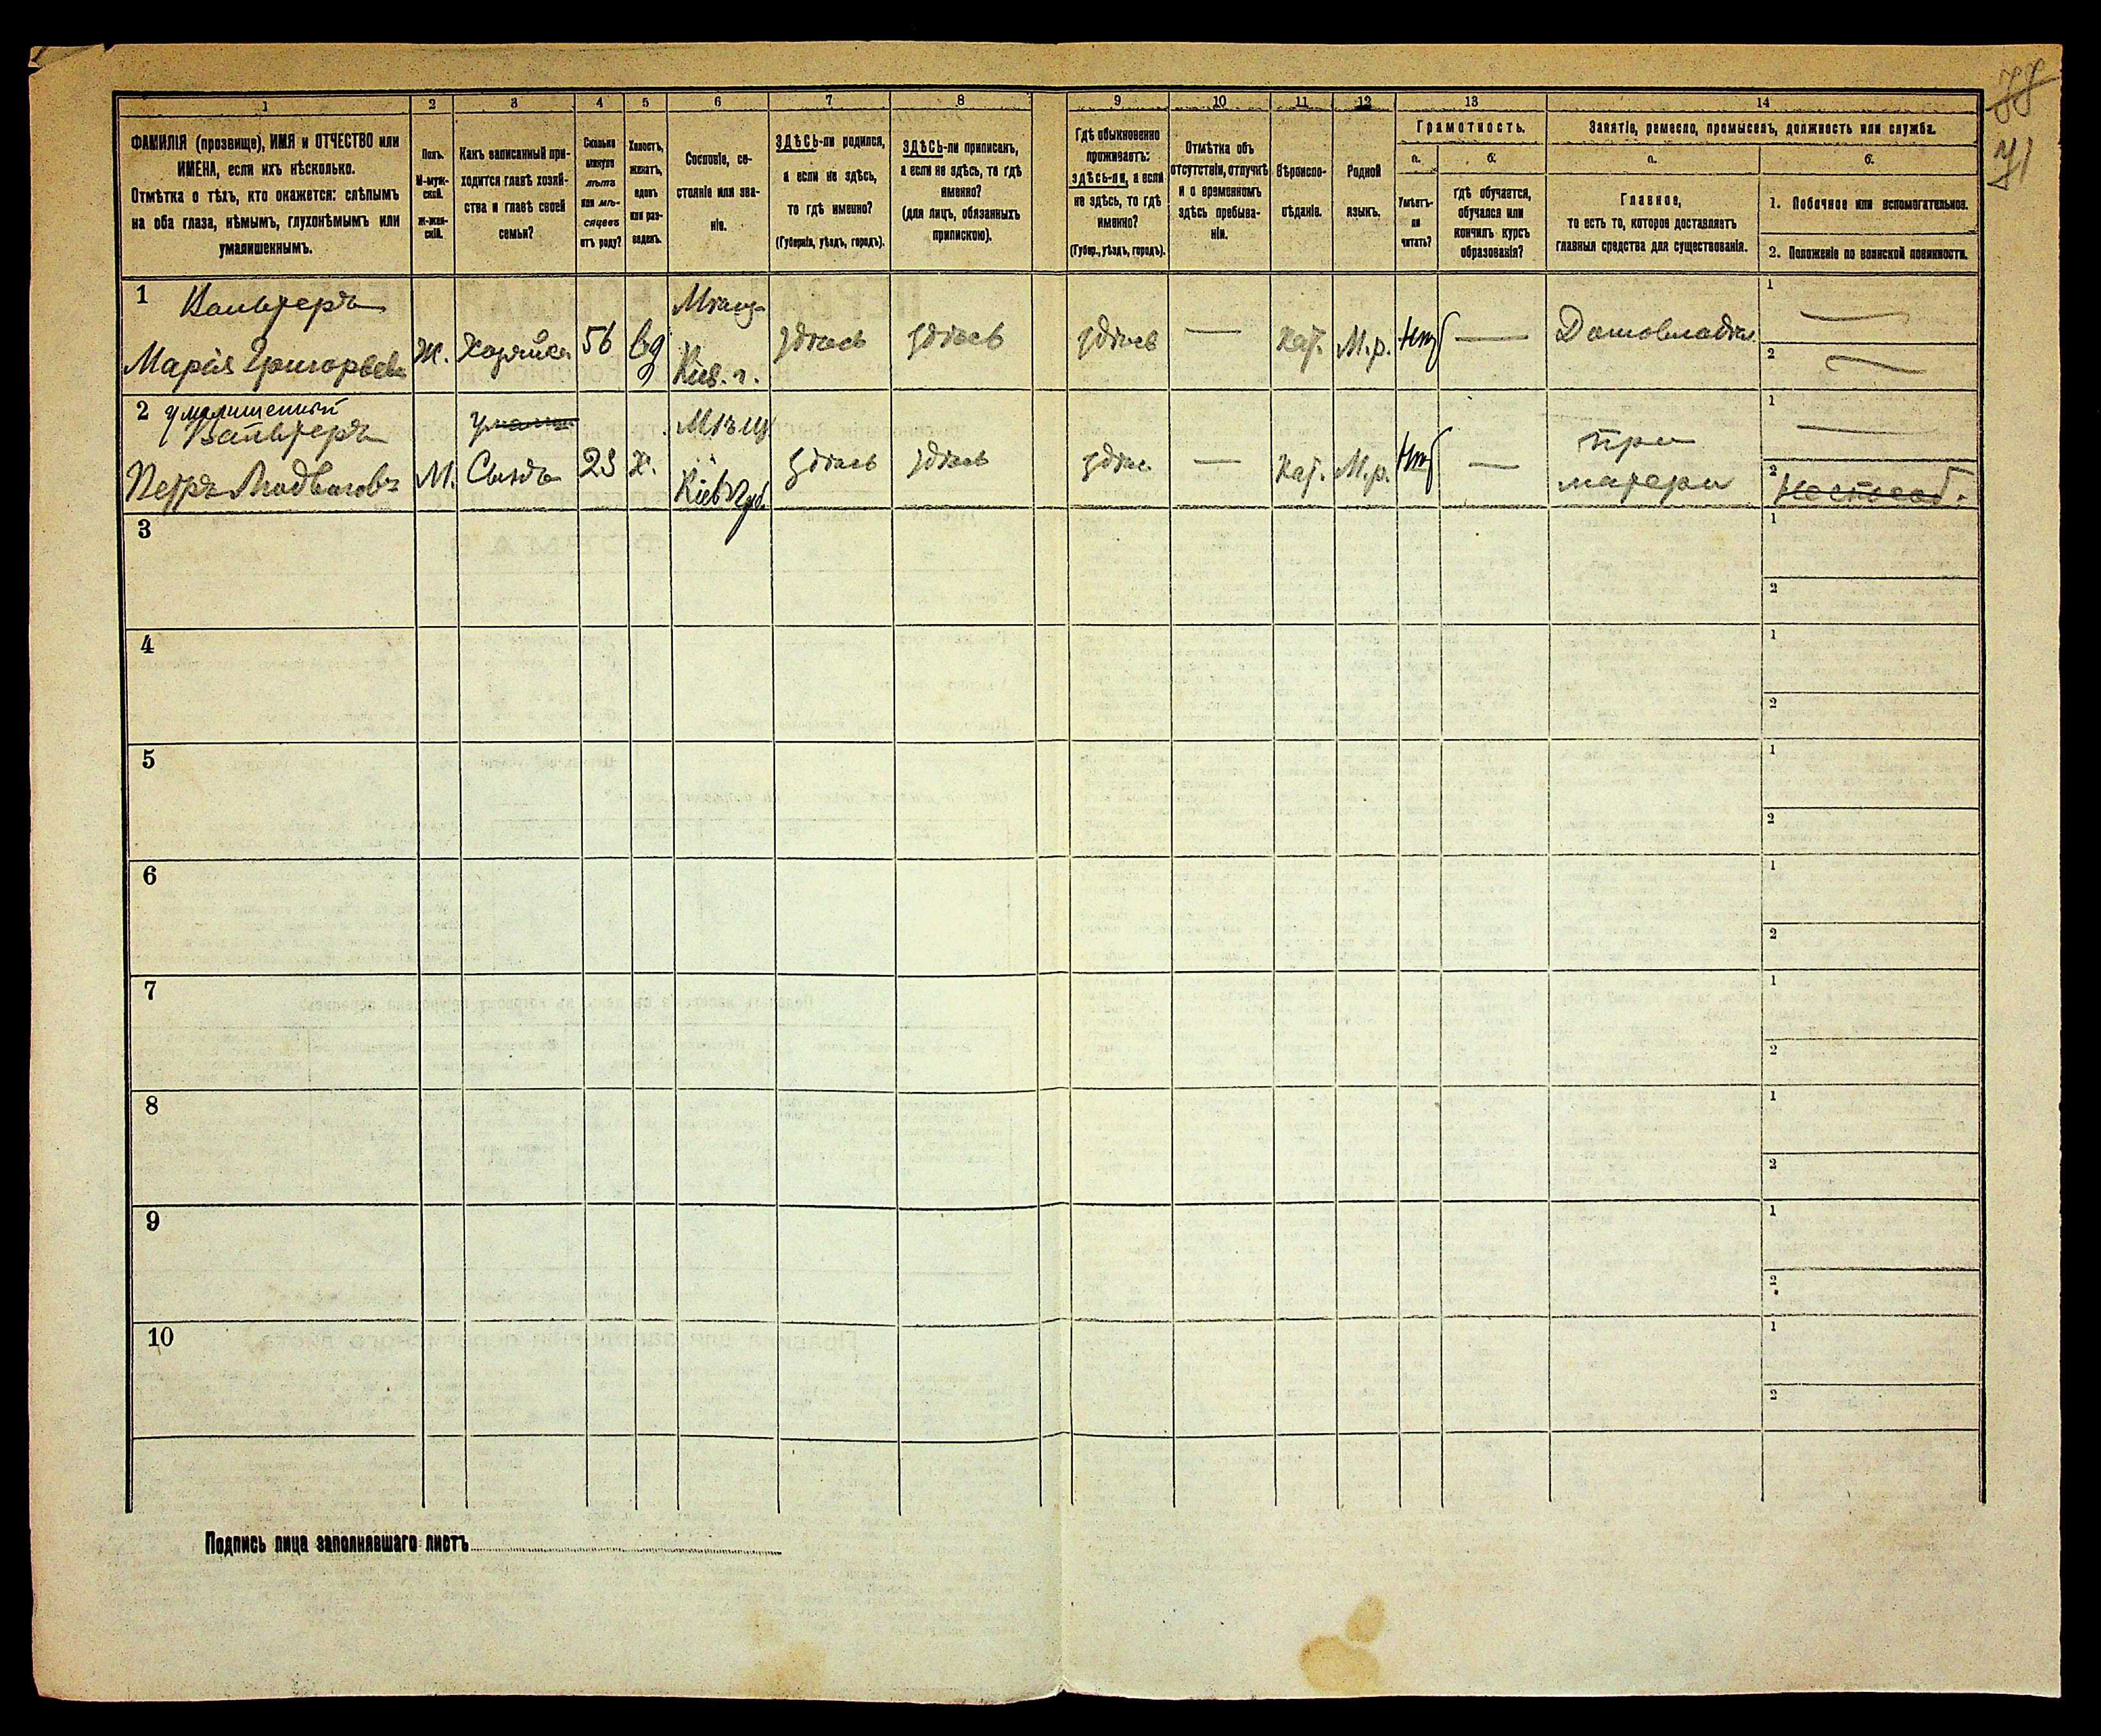 77
71
1
2
3
4
5
6
7
8
9
10
11
12
13
14
ФАМИЛІЯ (прозвище), ИМЯ и ОТЧЕСТВО или
ИМЕНА, если ихъ нѣсколько.
Отмѣтка о тѣхъ, кто окажется: слѣпымъ
на оба глаза, нѣмымъ, глухонѣмымъ или
умалишеннымъ.
Полъ.
М-муж-
ской.
Ж-жен-
скій.
Какъ записанный при-
ходится главѣ хозяй-
ства и главѣ своей
семьи?
Сколько
минуло
лѣтъ
или мѣ-
сяцевъ
отъ роду?
Холостъ,
женатъ,
вдовъ
или раз-
веденъ.
Сословіе, со-
стояніе или зва-
ніе.
ЗДѢСЬ-ли родился,
а если не здѣсь,
то гдѣ именно?
(Губернія, уѣздъ, городъ).
ЗДѢСЬ-ли приписанъ,
а если не здѣсь, то гдѣ
именно?
(для лицъ, обязанныхъ
припискою).
Гдѣ обыкновенно
проживаетъ:
здѣсь-ли, а если
не здѣсь, то гдѣ
именно?
(Губер., уѣздъ, городъ).
Отмѣтка объ
отсутствіи, отлучкѣ
и о временномъ
здѣсь пребыва-
ніи.
Вѣроиспо-
вѣданіе.
Родной
языкъ.
Грамотность.
а.
б.
Умѣетъ-
ли
читать?
Гдѣ обучается,
обучался или
кончилъ курсъ
образованія?
Занятіе, ремесло, промыселъ, должность или служба.
а.
б.
Главное,
то есть то, которое доставляетъ
главныя средства для существованія.
1. Побочное или вспомогательное.
2. Положеніе по воинской повинности.
1
Вальтеръ
Марія Григорьев
Ж.
Хозяйка
56
вд
Мѣщ-
Кіев. г.
здѣсь
здѣсь
здѣсь
—
Кат.
М.р.
Нѣт
—
Домовладѣл.
1
—
2
—
2
умалишенный
Вальтеръ
Петръ Людвигов
М.
Сынъ
23
х.
Мѣщ
Кіев губ.
здѣсь
здѣсь
здѣс.
—
Кат.
М.р.
Нѣт
—
при
матери
1
—
2
3
1
2
4
1
2
5
1
2
6
1
2
7
1
2
8
1
2
9
1
2
10
1
2
Подпись лица заполнявшаго листъ